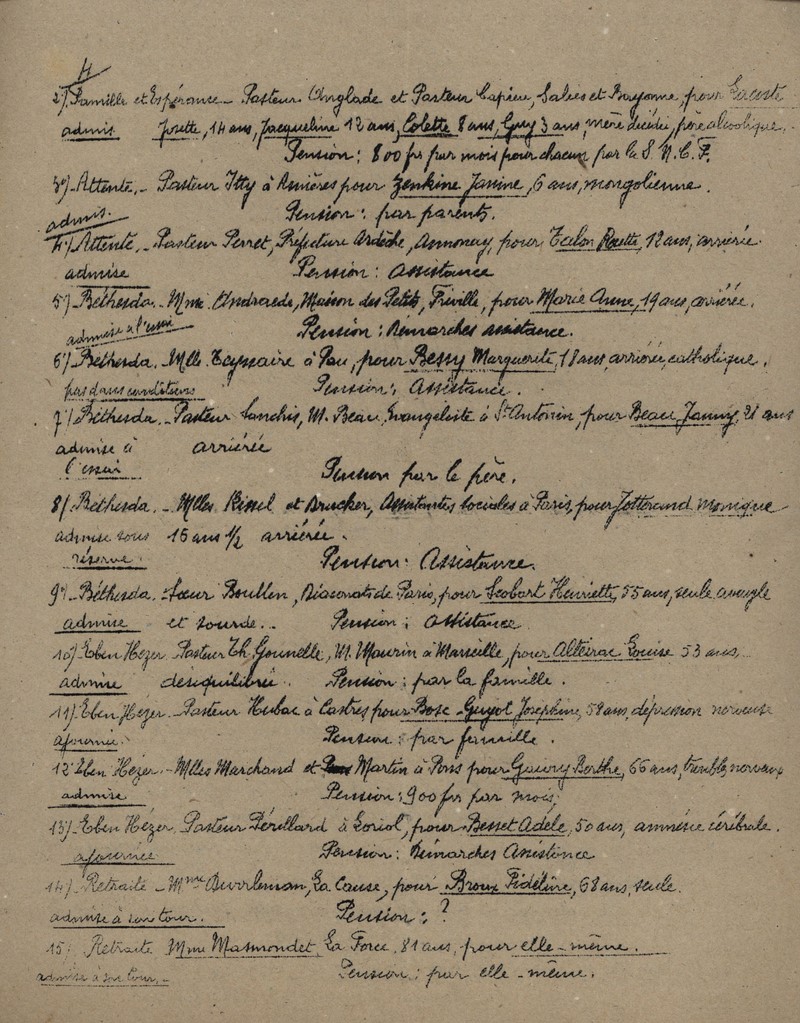 4
2°/ Famille et Espérance - Pasteur Anglade et Pasteur Capieu, Salies et Bayonne, pour Lacoste
admis Josette, 14 ans, Jacqueline 12 ans, Colette 8 ans, Guy 3 ans, mère décédée, père alcoolique.
Pension : 800 frs par mois pour chacun par la S.N.C.F.
3°/ Attente. - Pasteur Itty à Asnières pour Zenkine Janine, 6 ans, mongolienne.
admis. Pension : par parents.
4°/ Attente. - Pasteur Perret, Préfecture Ardèche, Annonay, pour 12 ans, arriérée.
admise Pension : Assistance
5°/ Béthesda - Mme Andraede, Maison des Petits, Fréville, pour Marie Anne, 19 ans, arriérée.
admise à l'essai Pension : Démarches assistance.
6°/ Béthesda. Mlle Teyssaire à Pau, pour Bessy Marguerite, 18 ans, arriérée, catholique.
pas dans conditions Pension : Assistance.
7°/ Béthesda - Pasteur Sanchis, M. Beau, Evangéliste à St Antonin, pour Beau Janny, 21 ans
admise à arriérée
l'essai Pension par le père.
8/ Béthesda. - Mlles et Brucker, Assistantes sociales à Paris, pour Jotterand Monique
admise sous 16 ans 1/2 arriérée.
réserve. Pension : Assistance.
9°/ Béthesda. Soeur Boullen, Diaconats de Paris, pour Scobart Henriette, 55 ans, seule aveugle
admise et sourde.. Pension ; assistance
10/ Eben Hézer Pasteur Th. Gounelle, M. Maurin à Marseille, pour Alteirac Louise 53 ans,
admise déséquilibrée. Pension : par la famille.
11/ Eben Hézer - Pasteur Hubac à Castres pour Bosc Guyot Joséphine, 58 ans, dépression nerveuse
ajournée. Pension : par famille.
12° Eben Hézer. - Mlles Marchand et Martin à Paris pour Gauvry Berthe, 66 ans, troubles nerveux
admise Pension : 900 frs par mois.
13°/ Eben Hézer. Pasteur Dérillard à Loriol, pour Besset Adèle, 50 ans, amnésie cérébrale.
ajournée Pension : Démarches Assistance
14°/ Retraite - Mme La Cause, pour Broux Fidéline, 68 ans, seule.
admise à son tour. Pension : ?
15°/ Retraite Mme Masmondet, La Force, 81 ans, pour elle-même.
admise à son tour. - Pension : par elle-même.